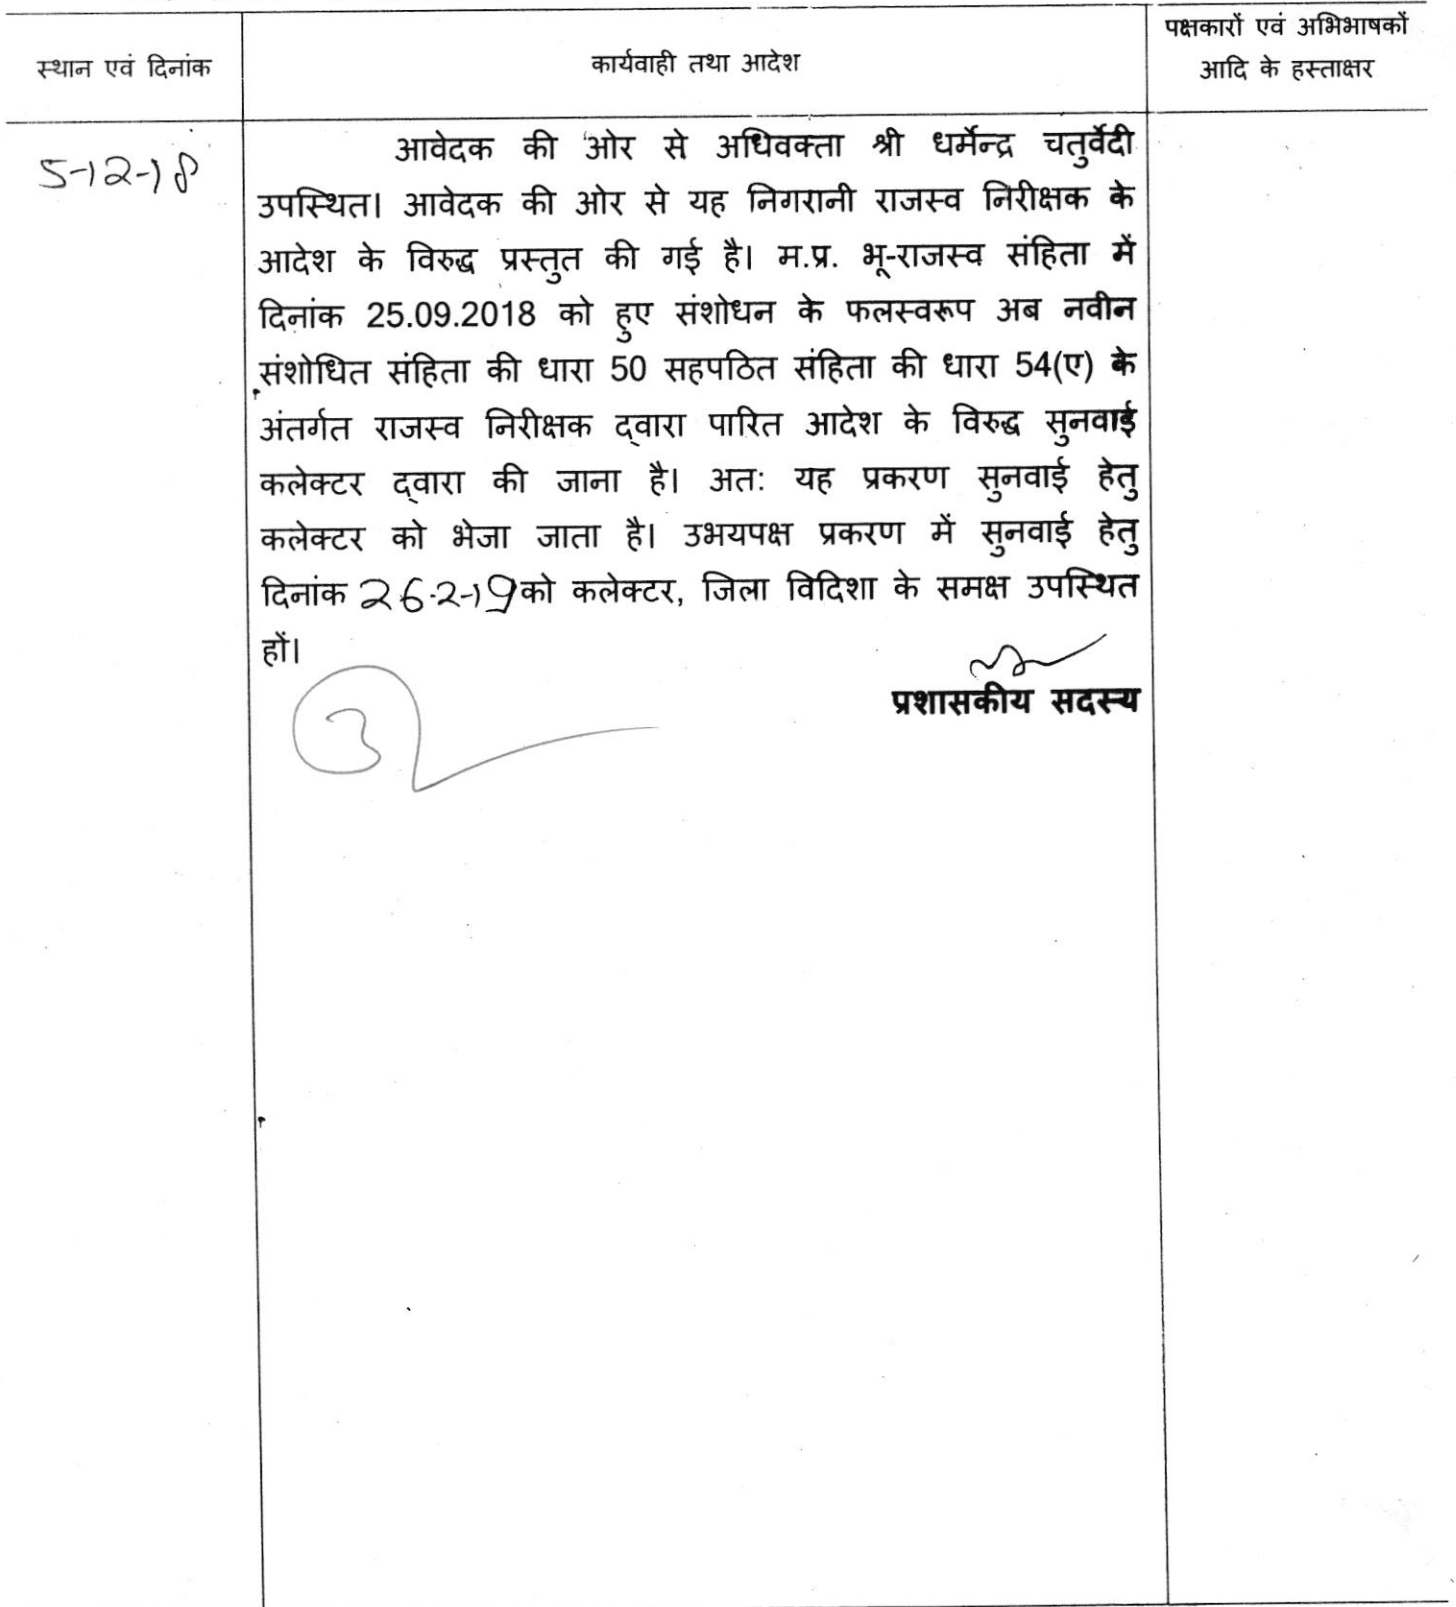 स्थान एवं दिनांक
कार्यवाही तथा आदेश
पक्षकारों एवं अभिभाषकों
आदि के हस्ताक्षर
5-12-18
आवेदक की ओर से अधिवक्ता श्री धर्मेन्द्र चतुर्वेदी
उपस्थित। आवेदक की ओर से यह निगरानी राजस्व निरीक्षक के
आदेश के विरुद्ध प्रस्तुत की गई है। म.प्र. भू-राजस्व संहिता में
दिनांक 25.09.2018 को हुए संशोधन के फलस्वरूप अब नवीन
संशोधित संहिता की धारा 50 सहपठित संहिता की धारा 54(ए) के
अंतर्गत राजस्व निरीक्षक द्वारा पारित आदेश के विरुद्ध सुनवाई
कलेक्टर द्वारा की जाना है। अतः यह प्रकरण सुनवाई हेतु
कलेक्टर को भेजा जाता है। उभयपक्ष प्रकरण में सुनवाई हेतु
दिनांक 26.2-19 को कलेक्टर, जिला विदिशा के समक्ष उपस्थित
हों।
प्रशासकीय सदस्य